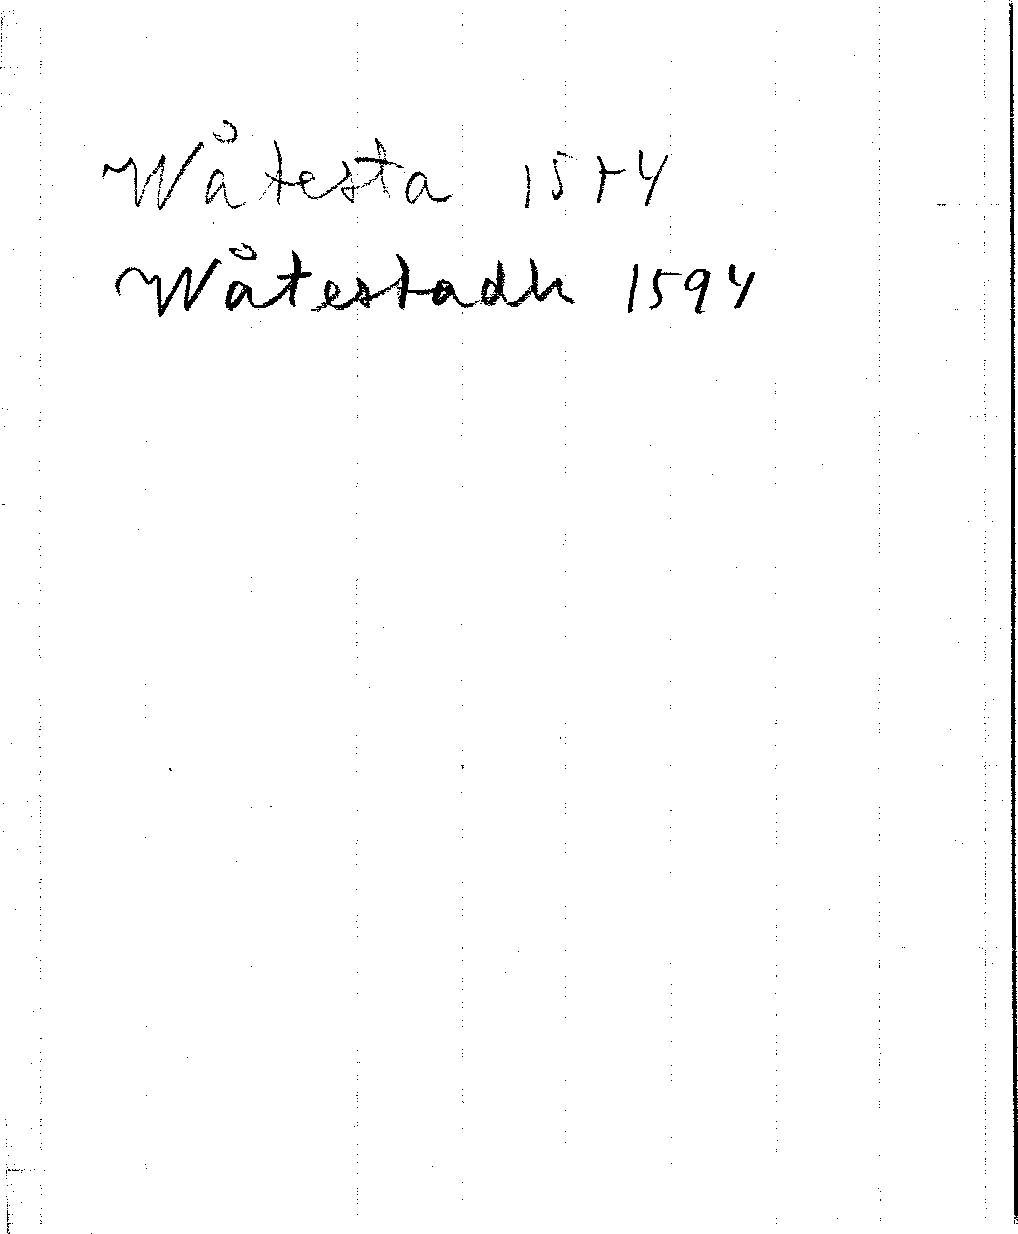 Wåtesta 1574
Wåtestadh 1594